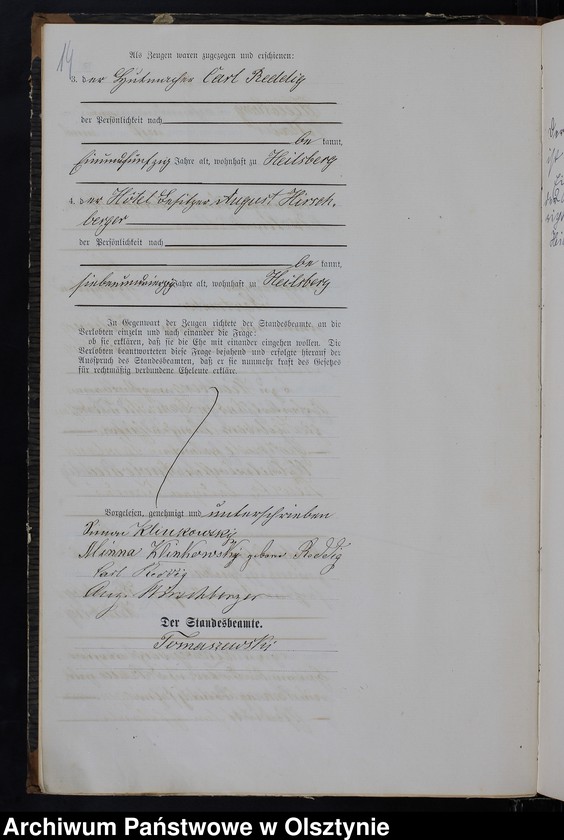 14
Als Zeugen waren zugezogen und erschienen:
3. der Hutmacher Carl Reddig
der Persönlichkeit nach
be kannt,
Einundfünfzig Jahre alt, wohnhaft zu Heilsberg
4. der Hôtel Besitzer August Hirsch-
berger
der Persönlichkeit nach
be kannt,
siebenundvierzig Jahre alt, wohnhaft zu Heilsberg
In Gegenwart der Zeugen richtete der Standesbeamte an die
Verlobten einzeln und nach einander die Frage:
ob sie erklären, daß sie die Ehe mit einander eingehen wollen. Die
Verlobten beantworteten diese Frage bejahend und erfolgte hierauf der
Ausspruch des Standesbeamten, daß er sie nunmehr kraft des Gesetzes
für rechtmäßig verbundene Eheleute erkläre.
Vorgelesen, genehmigt und unterschrieben
Klinkowsky
Minna Klinkowsky geborne Reddig
Carl Reddig
Aug. Hirschberger
Der Standesbeamte.
Tomaszewski
Archiwum Państwowe w Olsztynie